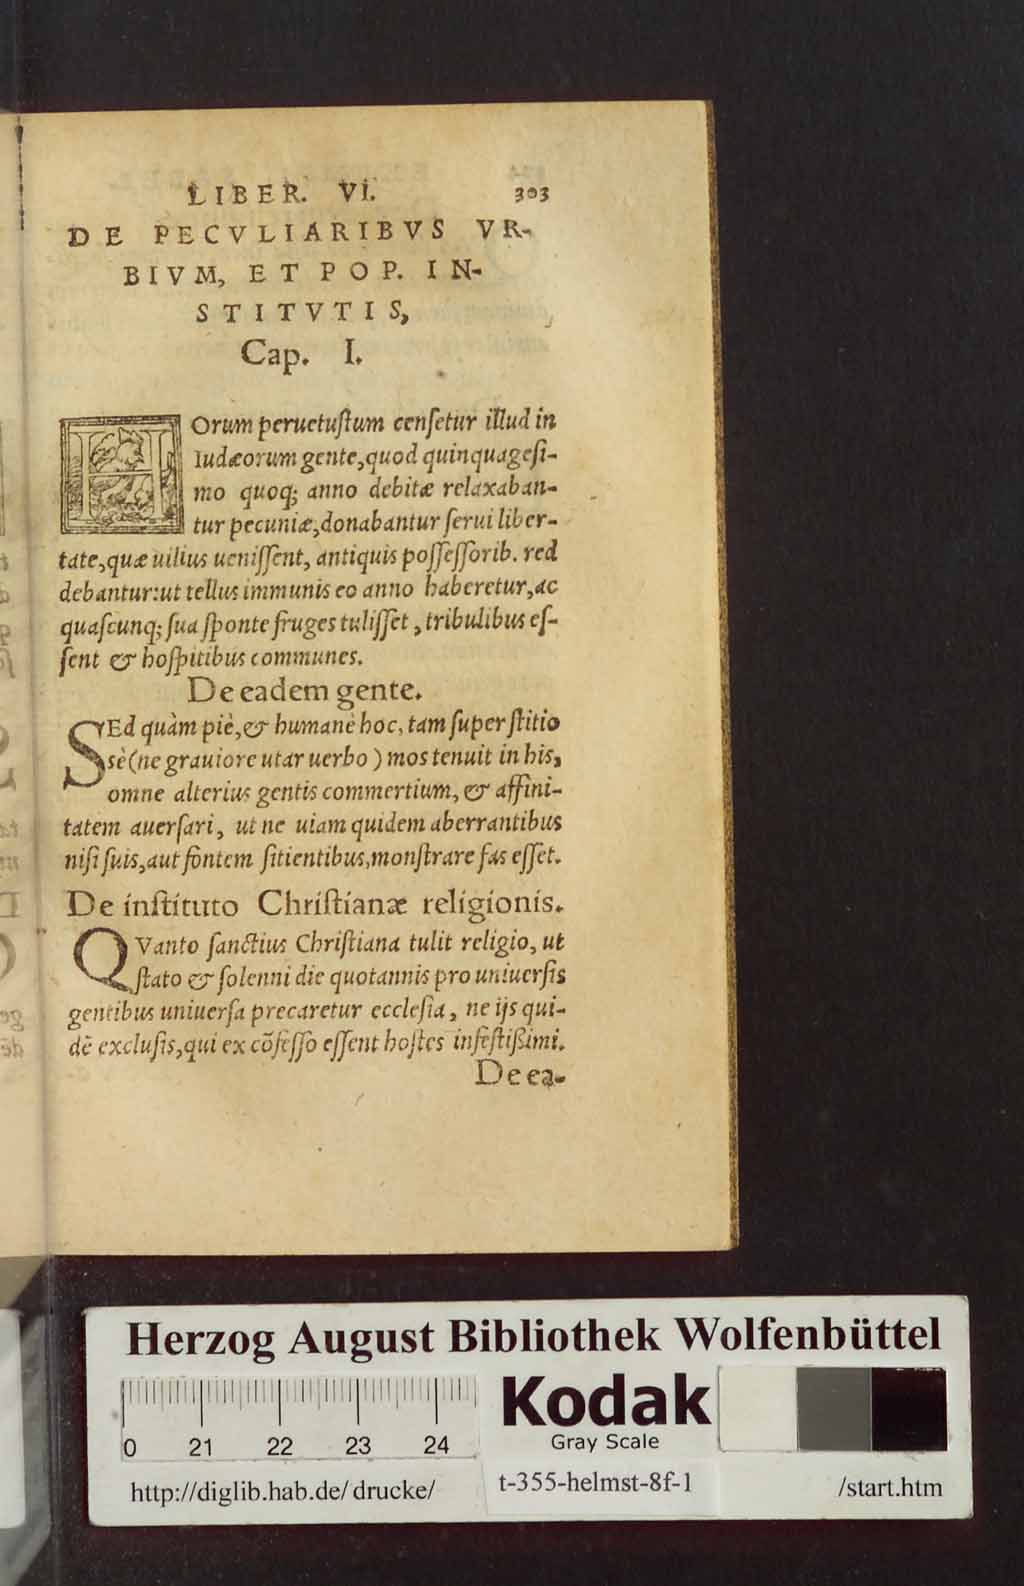 LIBER. VI. 303
DE PECVLIARIBVS VR-
BIVM, ET POP. IN-
STITVTIS,
Cap. I.
HOrum peruetuſtum cenſetur illud in
Iudæorum gente, quod quinquageſi-
mo quoq; anno debitæ relaxaban-
tur pecuniæ, donabantur ſerui liber-
tate, quæ uilius ueniſſent, antiquis poſſeſſorib. red
debantur: ut tellus immunis eo anno haberetur, ac
quaſcunq; ſua ſponte fruges tuliſſet, tribulibus eſ-
ſent & hoſpitibus communes.
De eadem gente.
SEd quàm piè, & humanè hoc, tam ſuperſtitio
sè (ne grauiore utar uerbo) mos tenuit in his,
omne alterius gentis commertium, & affini-
tatem auerſari, ut ne uiam quidem aberrantibus
niſi ſuis, aut fontem ſitientibus, monſtrare fas eſſet.
De inſtituto Chriſtianæ religionis.
QVanto ſanctius Chriſtiana tulit religio, ut
ſtato & ſolenni die quotannis pro uniuerſis
gentibus uniuerſa precaretur eccleſia, ne ijs qui-
dē excluſis, qui ex cōfeſſo eſſent hoſtes infeſtißimi.
De ea-
Herzog August Bibliothek Wolfenbüttel
0 21 22 23 24
Kodak
Gray Scale
http://diglib.hab.de/drucke/ t-355-helmst-8f-1 /start.htm